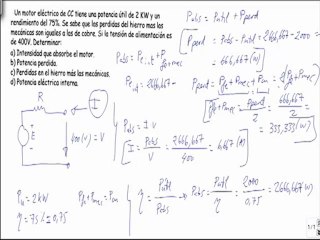 Un motor eléctrico de CC tiene una potencia útil de 2 KW y un
rendimiento del 75%. Se sabe que las perdidas del hierro mas las
mecánicas son iguales a las de cobre. Si la tensión de alimentación es
de 400V. Determinar:
a) Intensidad que absorbe el motor.
b) Potencia perdida.
c) Perdidas en el hierro más las mecánicas.
d) Potencia eléctrica interna.
Pabs = Putil + Pperd
Pperd = Pabs - Putil = 2666,667 - 2000
= 666,667 (w)
R
I
E
400 (v) = V
Pabs = I · V
I = Pabs / V = 2666,667 / 400 = 6,667 (A)
= 333,333 (w)
Pu = 2 kW
η = 75% = 0,75
η = Putil / Pabs → Pabs = Putil / η = 2000 / 0,75 = 2666,667 (w)